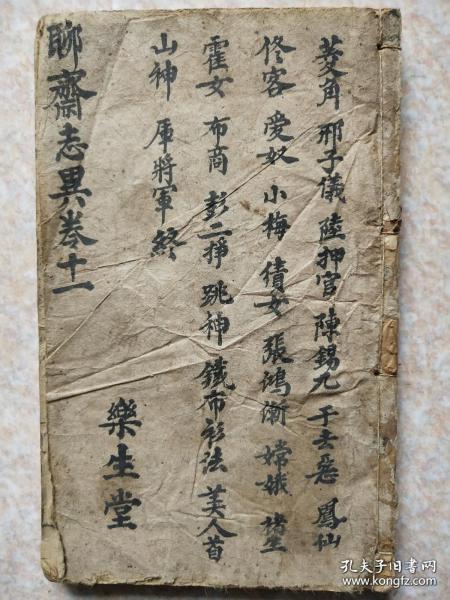 菱角 邢子儀 陸押官 陳錫九 于去惡 鳳仙
佟客 愛奴 小梅 績女 張鴻漸 嫦娥 褚生
霍女 布商 彭二掙 跳神 鐵布衫法 美人首
山神 厙將軍 終
聊齋志異卷十一
樂生堂
孔夫子旧书网
www.kongfz.com